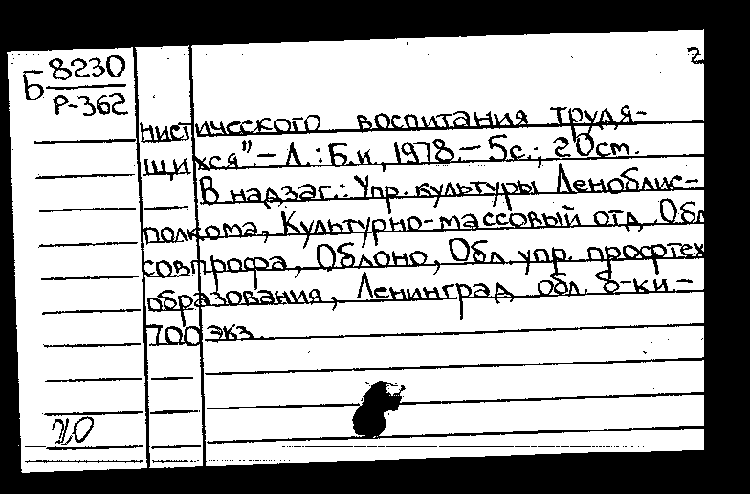 2
Б 8230
Р-362
нистического воспитания трудя-
щихся".– Л.: Б.и, 1978.– 5с.; 20см.
В надзаг.: Упр. культуры Леноблис-
полкома, Культурно-массовый отд. Обл
совпрофа, Облоно, Обл. упр. профтех
образования, Ленинград. обл. б-ки.–
700 экз.